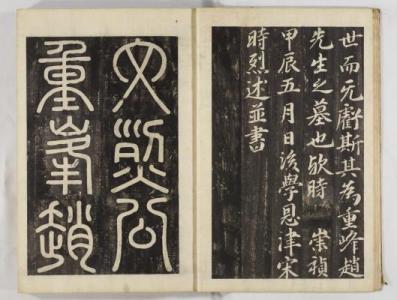 世而无虧斯其為重峰趙
先生之墓也歟時 崇禎
甲辰五月日後學恩津宋
時烈述並書
文烈公
重峯趙